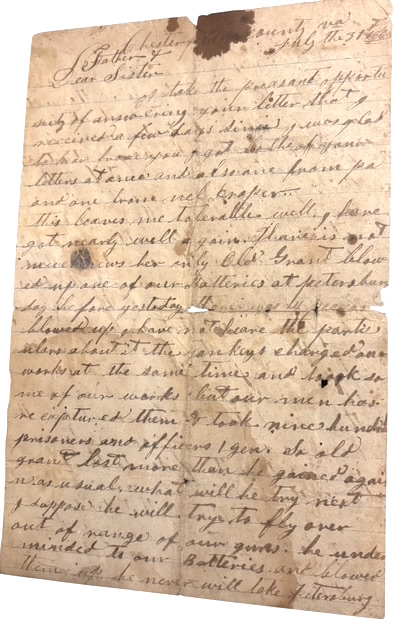 Chesterf County va
July the 31st 1864
Father &
Dear Sister
I take the preasant opportu
nity of answering your letter that I
received a few days since I was glad
to hear from you I got both of your
letters at once and also one from pa
and one from
this leaves me tolerable well. I have
got nearly well again. There is not
much news her only Old Grant blow
ed up one of our Batteries at petersburg
day before yesterday
blowed up I have not heare the partic
ulars about it the yankeys charged our
works at the same time and took so
me of our works but our men has
re captured them & took nine hundred
prisoners and officers 1 gen. So old
grant lost more than he gained again
n as usual. what will he try next
I suppose he will try to fly over
out of range of our guns. he under
minded to our Batteries and blowed
them up he never will take petersburg